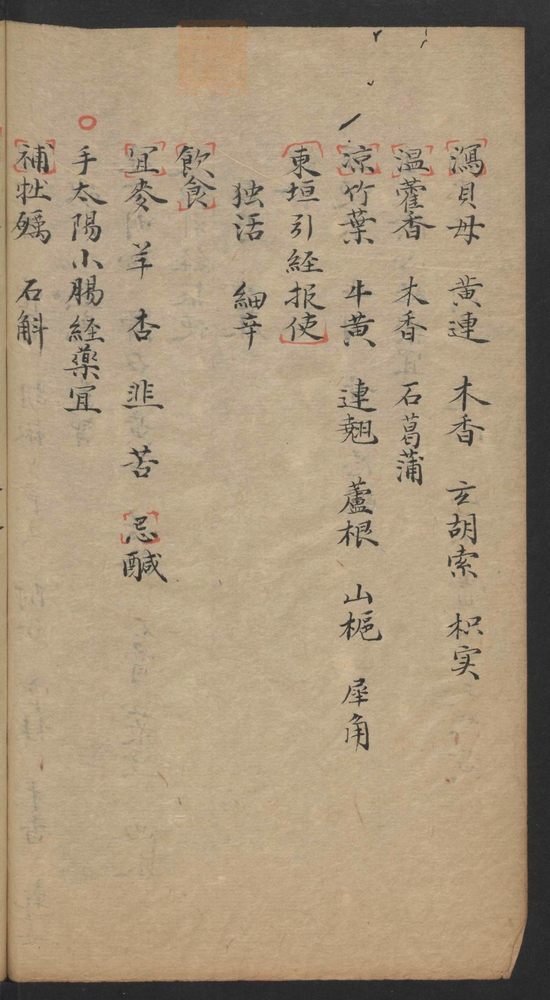 瀉貝母　黄連　木香　玄胡索　枳实
温藿香　木香　石菖蒲
凉竹葉　牛黄　連翹　蘆根　山栀　犀角
東垣引經报使
独活　細辛
飲食
宜麥　羊　杏　韭　苦　忌醎
手太陽小腸経藥宜
補牡蠣　石斛